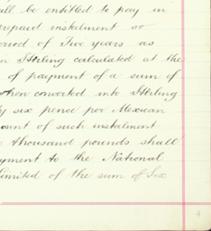 all be entitled to pay in
repaid instalment or
period of Five Years as
n Stirling calculated at the
of payment of a sum if
when converted into Stirling
ty six pence per Mexican
ount of such instalment
thousand pounds shall
yment to the National
Limited of the sum of Six